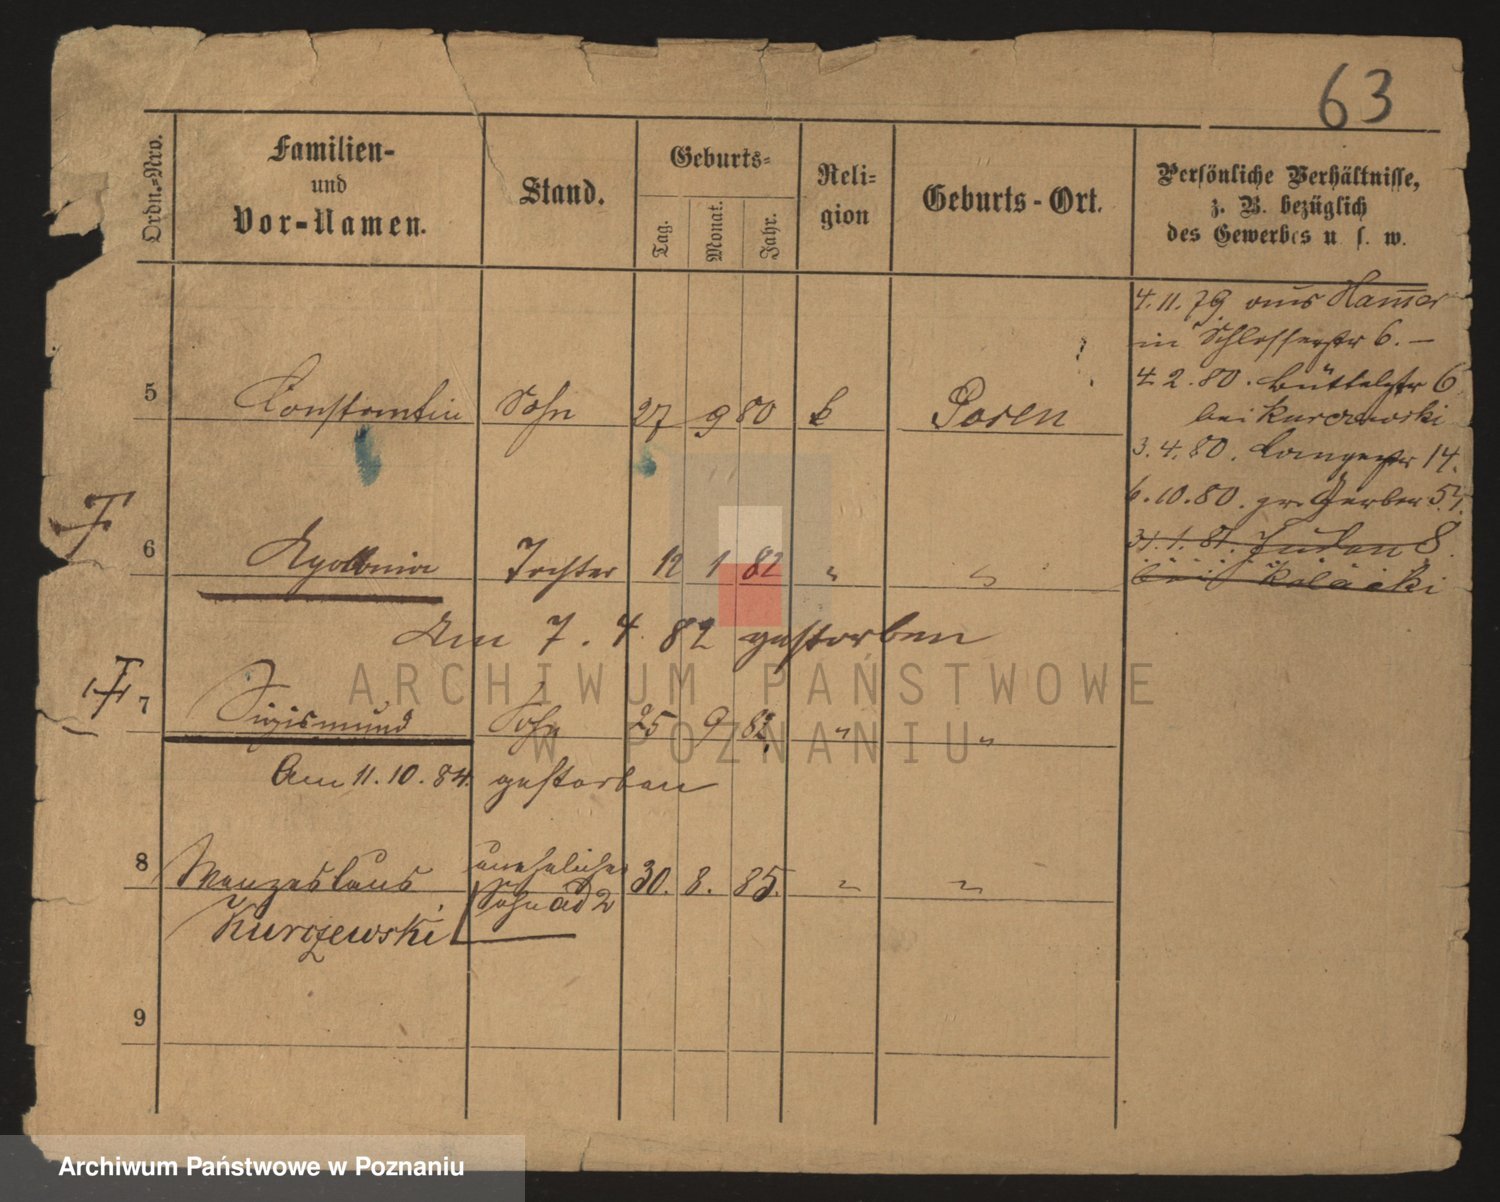 63
Ordn.-Nro.
Familien-
und
Vor-Namen.
Stand.
Geburts-
Tag.
Monat.
Jahr.
Reli-
gion
Geburts-Ort.
Persönliche Verhältnisse,
z. B. bezüglich
des Gewerbes u. s. w.
4. 11. 79 aus Hamer
in Schlosserstr 6. –
4. 2. 80. Büttelstr 6
bei Kurczewski
3. 4. 80. Langestr 14.
6. 10. 80. gr. Gerber 57.
31. 1. 81. Juden 8.
bei
5 Constantin Sohn 27 9 80 k Posen
6 Apollonia Tochter 12 1 82 " "
Am 7. 4. 82 gestorben
7 Sigismund Sohn 25 9 82. " "
Am 11. 10. 84. gestorben
8 Wenzeslaus unehelicher 30. 8. 85. " "
Kurczewski Sohn ad 2
9
ARCHIWUM PAŃSTWOWE
W POZNANIU
Archiwum Państwowe w Poznaniu